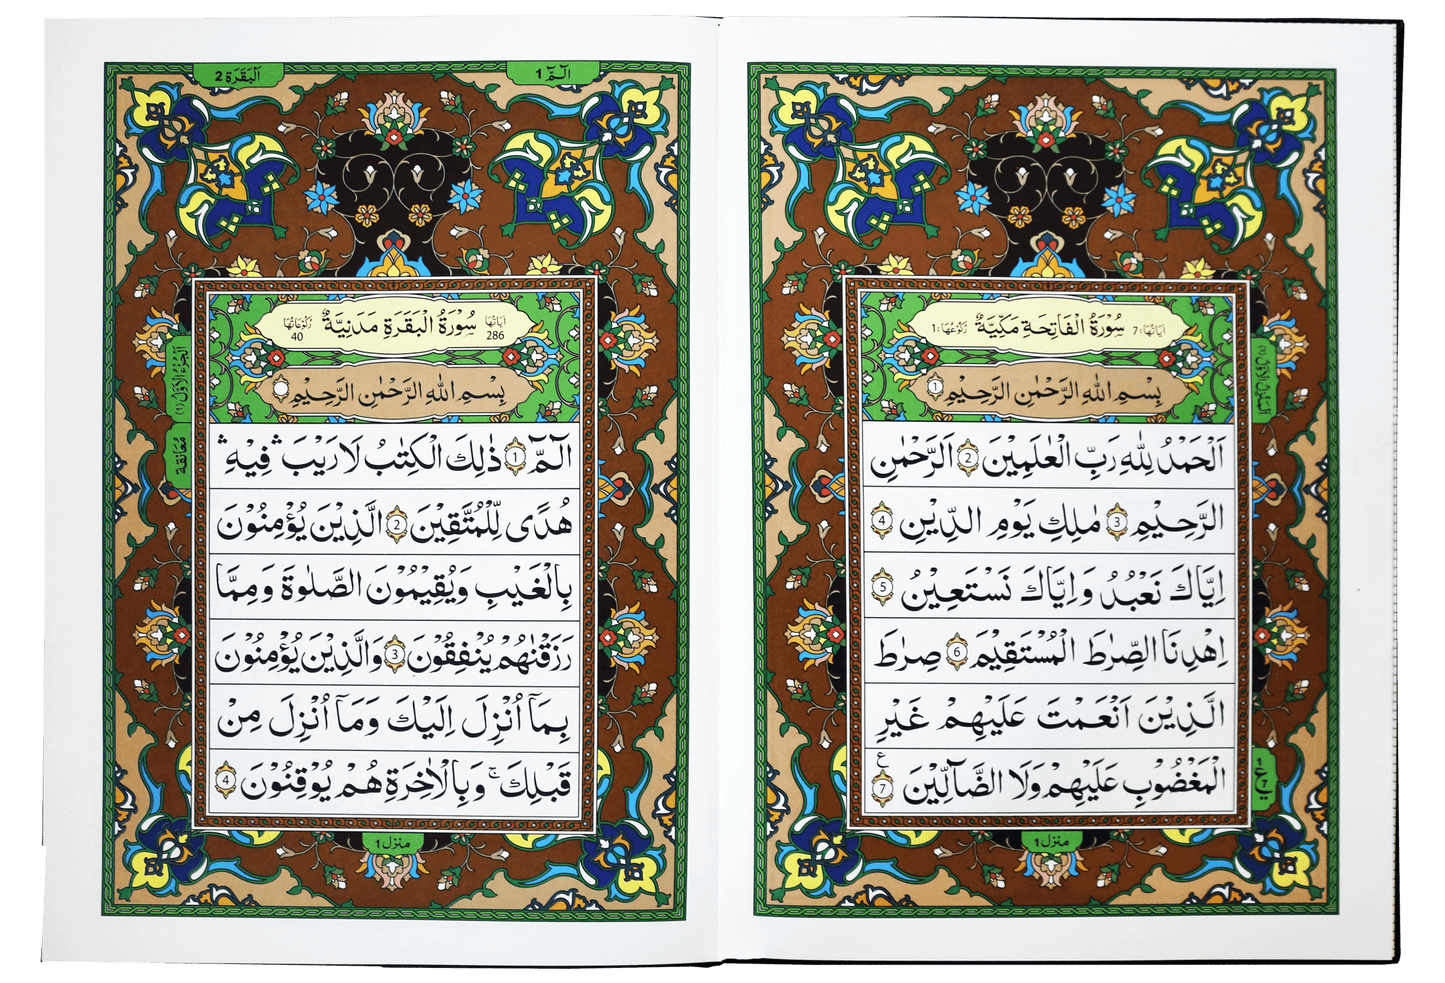 سُوْرَةُ الْفَاتِحَةِ مَكِّيَّةٌ
اٰيَاتُهَا: 7
رُكُوْعُهَا: 1
بِسْمِ اللهِ الرَّحْمٰنِ الرَّحِيْمِ 1
اَلْحَمْدُ لِلّٰهِ رَبِّ الْعٰلَمِيْنَ 2 الرَّحْمٰنِ
الرَّحِيْمِ 3 مٰلِكِ يَوْمِ الدِّيْنِ 4
اِيَّاكَ نَعْبُدُ وَاِيَّاكَ نَسْتَعِيْنُ 5
اِهْدِنَا الصِّرَاطَ الْمُسْتَقِيْمَ 6 صِرَاطَ
الَّذِيْنَ اَنْعَمْتَ عَلَيْهِمْ غَيْرِ
الْمَغْضُوْبِ عَلَيْهِمْ وَلَا الضَّآلِّيْنَ 7
ع
منزل 1
الٓمّٓ 1
اَلْبَقَرَة 2
سُوْرَةُ الْبَقَرَةِ مَدَنِيَّةٌ
اٰيَاتُهَا 286
رُكُوْعَاتُهَا 40
بِسْمِ اللهِ الرَّحْمٰنِ الرَّحِيْمِ
الٓمّٓ 1 ذٰلِكَ الْكِتٰبُ لَا رَيْبَ ۛ فِيْهِ ۛ
هُدًى لِّلْمُتَّقِيْنَ 2 الَّذِيْنَ يُؤْمِنُوْنَ
بِالْغَيْبِ وَيُقِيْمُوْنَ الصَّلٰوةَ وَمِمَّا
رَزَقْنٰهُمْ يُنْفِقُوْنَ 3 وَالَّذِيْنَ يُؤْمِنُوْنَ
بِمَآ اُنْزِلَ اِلَيْكَ وَمَآ اُنْزِلَ مِنْ
قَبْلِكَ ۚ وَبِالْاٰخِرَةِ هُمْ يُوْقِنُوْنَ 4
اَلْجُزْءُ الْاَوَّلُ (1)
مُعَانَقَة
منزل 1